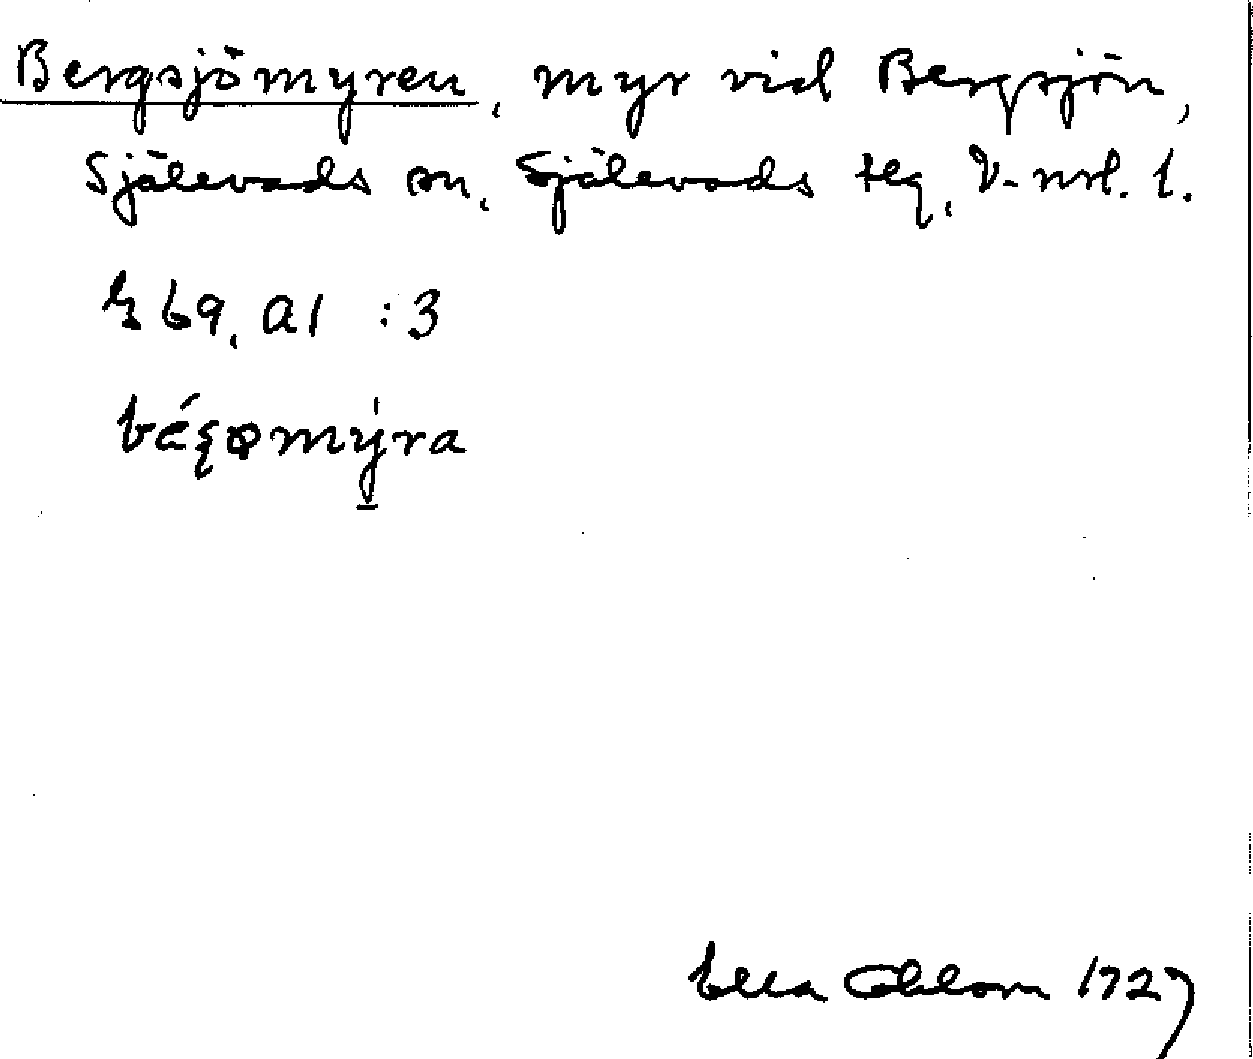 Bergsjömyren, myr vid Bergsjön,
Själevads sn, Själevads tlg, V-nrl. l.
§ 69, a1 :3
Ella Ohlson 1727